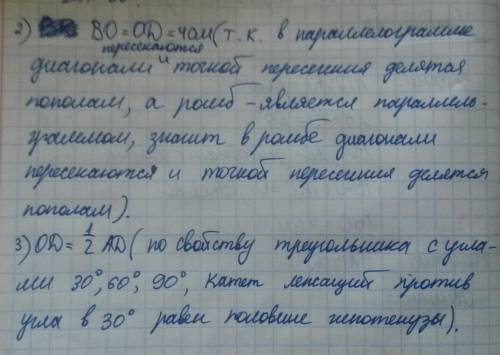 2) BO = OD = 4см (т.к. в параллелограмме
пересекаются
диагонали и точкой пересечения делятся
пополам, а ромб - является параллель-
граммом, значит в ромбе диагонали
пересекаются и точкой пересечения делятся
пополам).
3) OD = 1/2 AD (по свойству треугольника с угла-
ми 30°, 60°, 90°, катет лежащий против
угла в 30° равен половине гипотенузы).